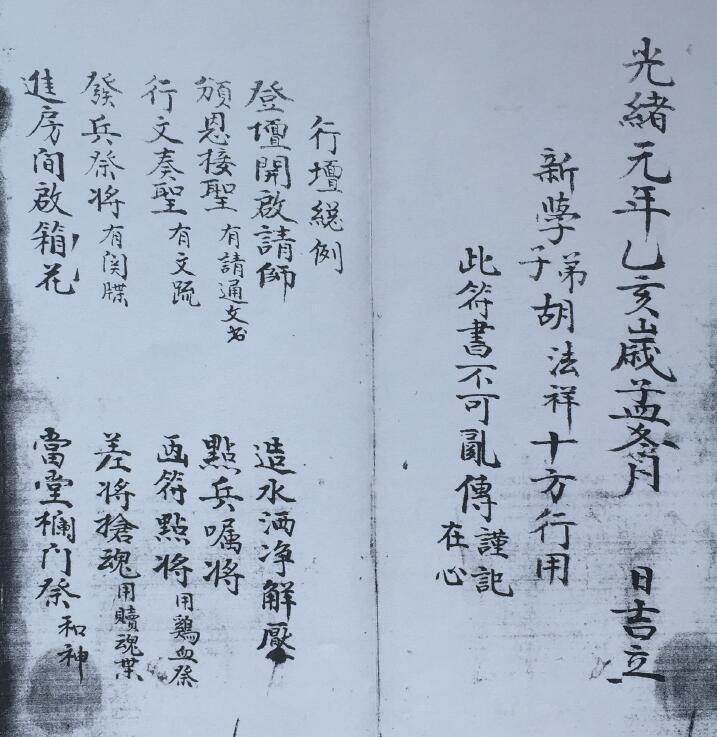 光緒元年乙亥歲孟冬月 日吉立
新學弟子胡法祥十方行用
此符書不可亂傳謹記在心
行壇總例
登壇開啟請師 造水洒净解壓
頒恩接聖有請通文书 點兵嘱将
行文奏聖有文疏 画符點将用鷄血祭
發兵祭将有関牒 差将搶魂用贖魂
進房间啟箱花 當堂欄门祭和神